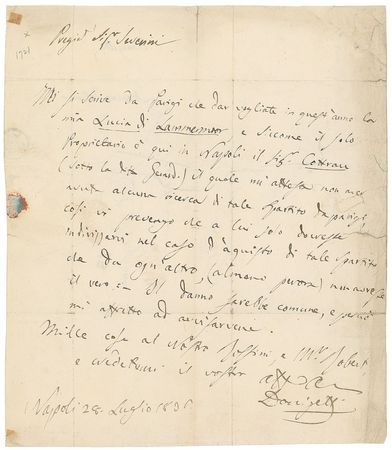 Pregiō Sigr Severini
Mi si scrive da Parigi che dar vogliate in quest'anno la
mia Lucia di Lammermoor, e siccome il solo
Proprietario è qui in Napoli il Sigr Cottrau
(sotto la dita Girard.) il quale mi attesta non aver
avuta alcuna ricerca di tale Spartito da parigi,
così vi prevengo che a lui solo dovrete
indirizzarvi nel caso d'aquisto di tale Spartito
che da ogni altro, (almeno penora) non avreste
il vero.= Il danno sarebbe comune, e perciò
mi affretto ad avvisarvene.
Mille cose al nostro Rossini, e Mr Robert
e credetemi il vostro
Donizetti
Napoli 28. Luglio 183